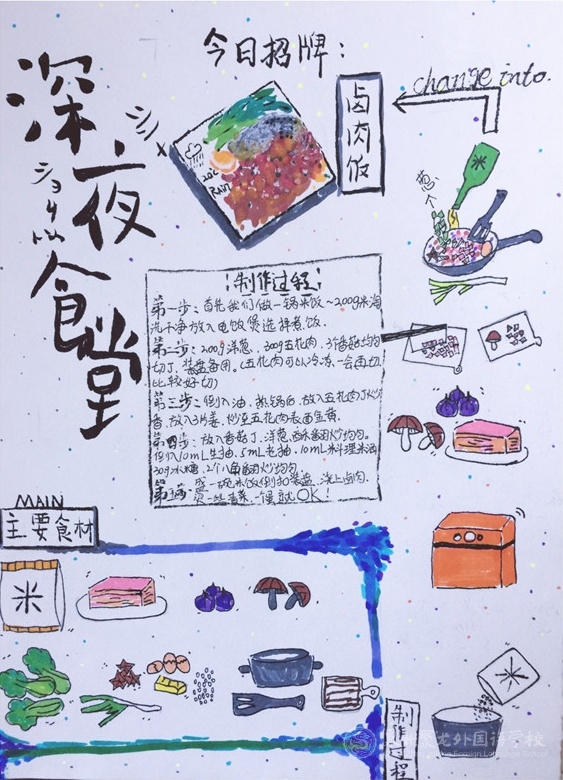 今日招牌:
深夜食堂
卤肉饭
change into.
RAW
葱
米
制作过程
第一步:首先我们做一锅米饭~200g米淘
洗干净放入电饭煲选择煮饭.
第二步:200g洋葱.300g五花肉.3个香菇均匀
切丁,装盘备用.(五花肉可以冷冻一会再切
比较好切)
第三步:倒入油.热锅后.放入五花肉丁炒
香.放入3片姜.炒至五花肉表面金黄.
第四步:放入香菇丁.洋葱.酥翻炒均匀.
倒入10mL生抽.5mL老抽.10mL料理米酒
30g冰糖.2个八角翻炒均匀
第五步:盛一碗米饭倒扣装盘.浇上卤肉.
MAIN
主要食材
米
米
制作过程
外国语学校
Foreign Language School